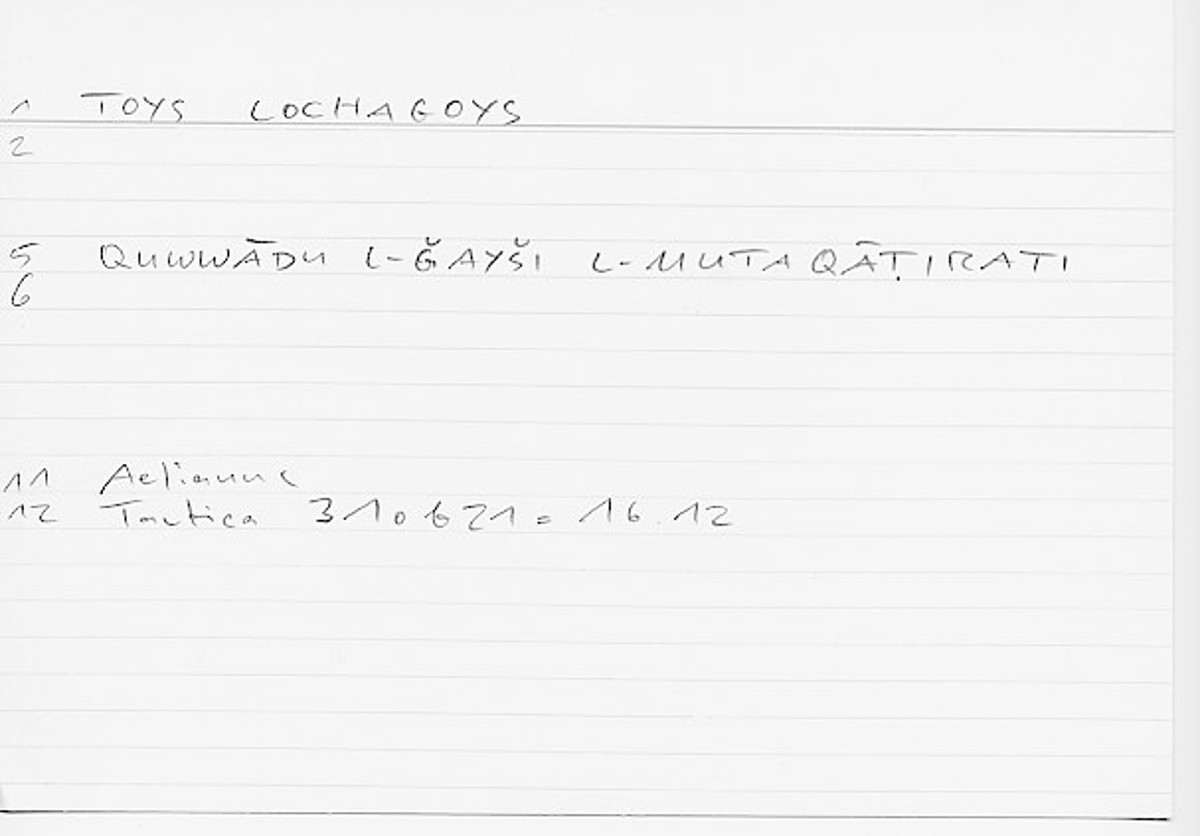 1 TOYS LOCHAGOYS
2
5 QUWWĀDU L-ǦAYŠI L-MUTAQĀṬIRATI
6
11 Aelianus
12 Tactica 310b21 = 16.12